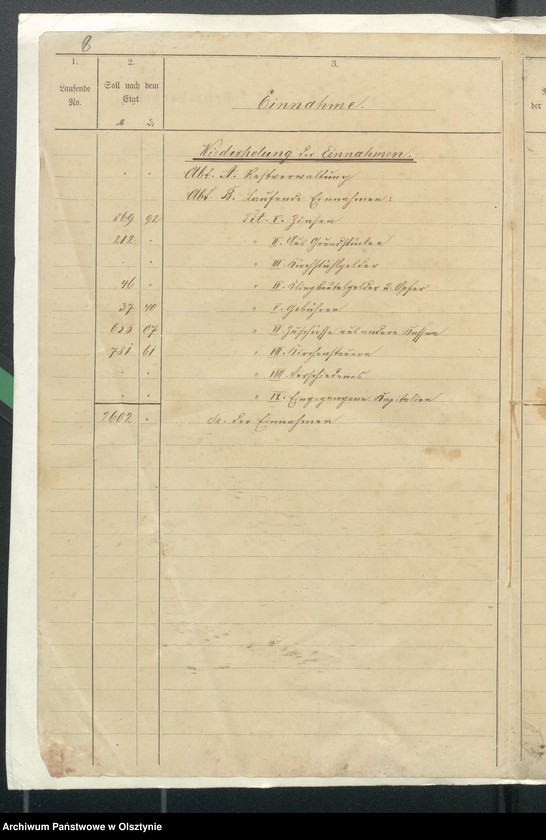 8
1.
2.
3.
Laufende
No.
Soll nach dem
Etat
M
Einnahme.
der
Wiederholung der Einnahmen.
. . Abt. A. Restverwaltung
Abt. B. Laufende Einnahmen:
869 92 Tit. I. Zinsen
212 . " II. Aus Grundstücken
. . " III. Kirchstuhlgelder
46 . " IV. Klingbeutelgelder u. Opfer
37 40 " V. Gebühren
653 07 " VI. Zuschüsse aus andere Kassen
781 61 " VII. Kirchensteuern
. . " VIII. Verschiedenes
. . " IX. Eingegangene Kapitalien
2602 . Sa. der Einnahmen
Archiwum Państwowe w Olsztynie